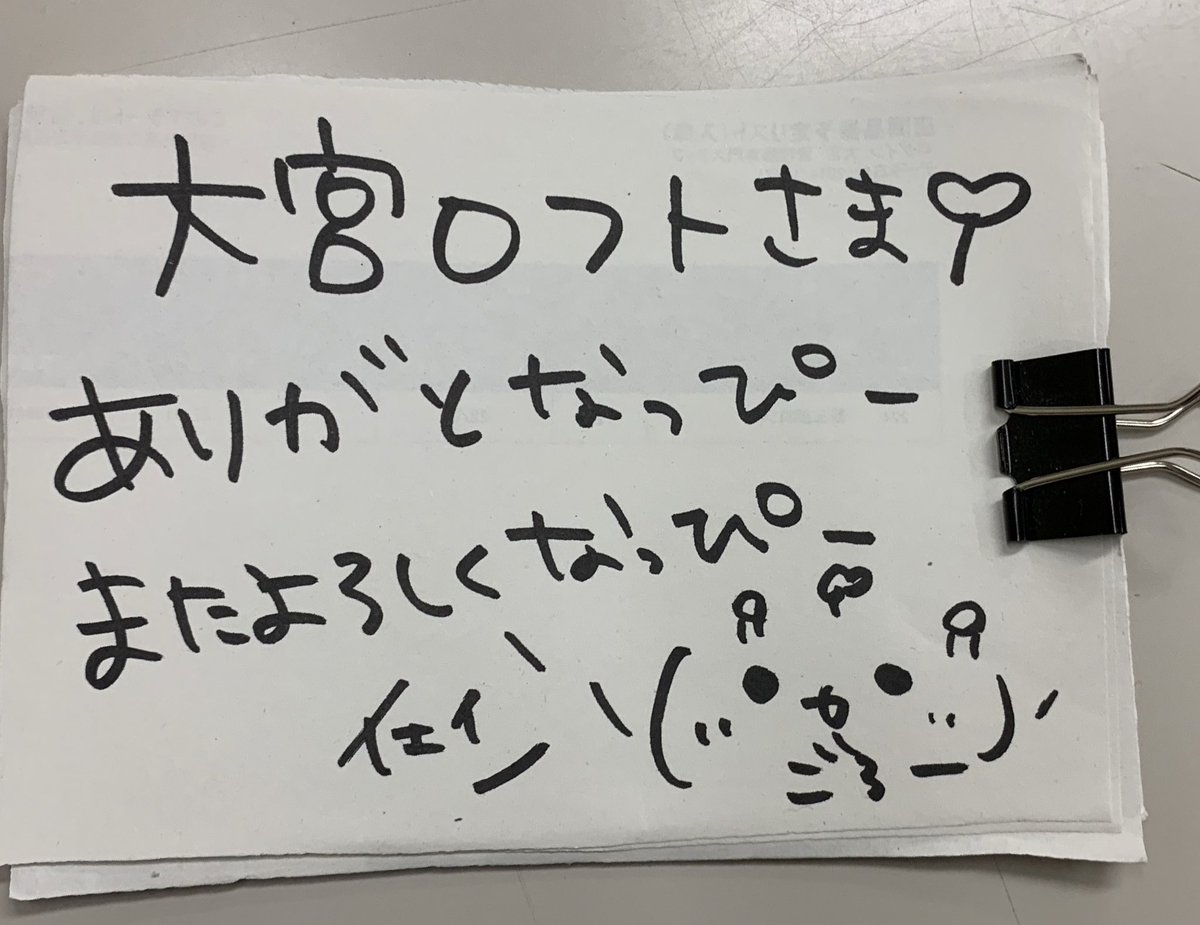 大宮ロフトさま♡
ありがとなっぴー
またよろしくなっぴー
イェイ
ごろー